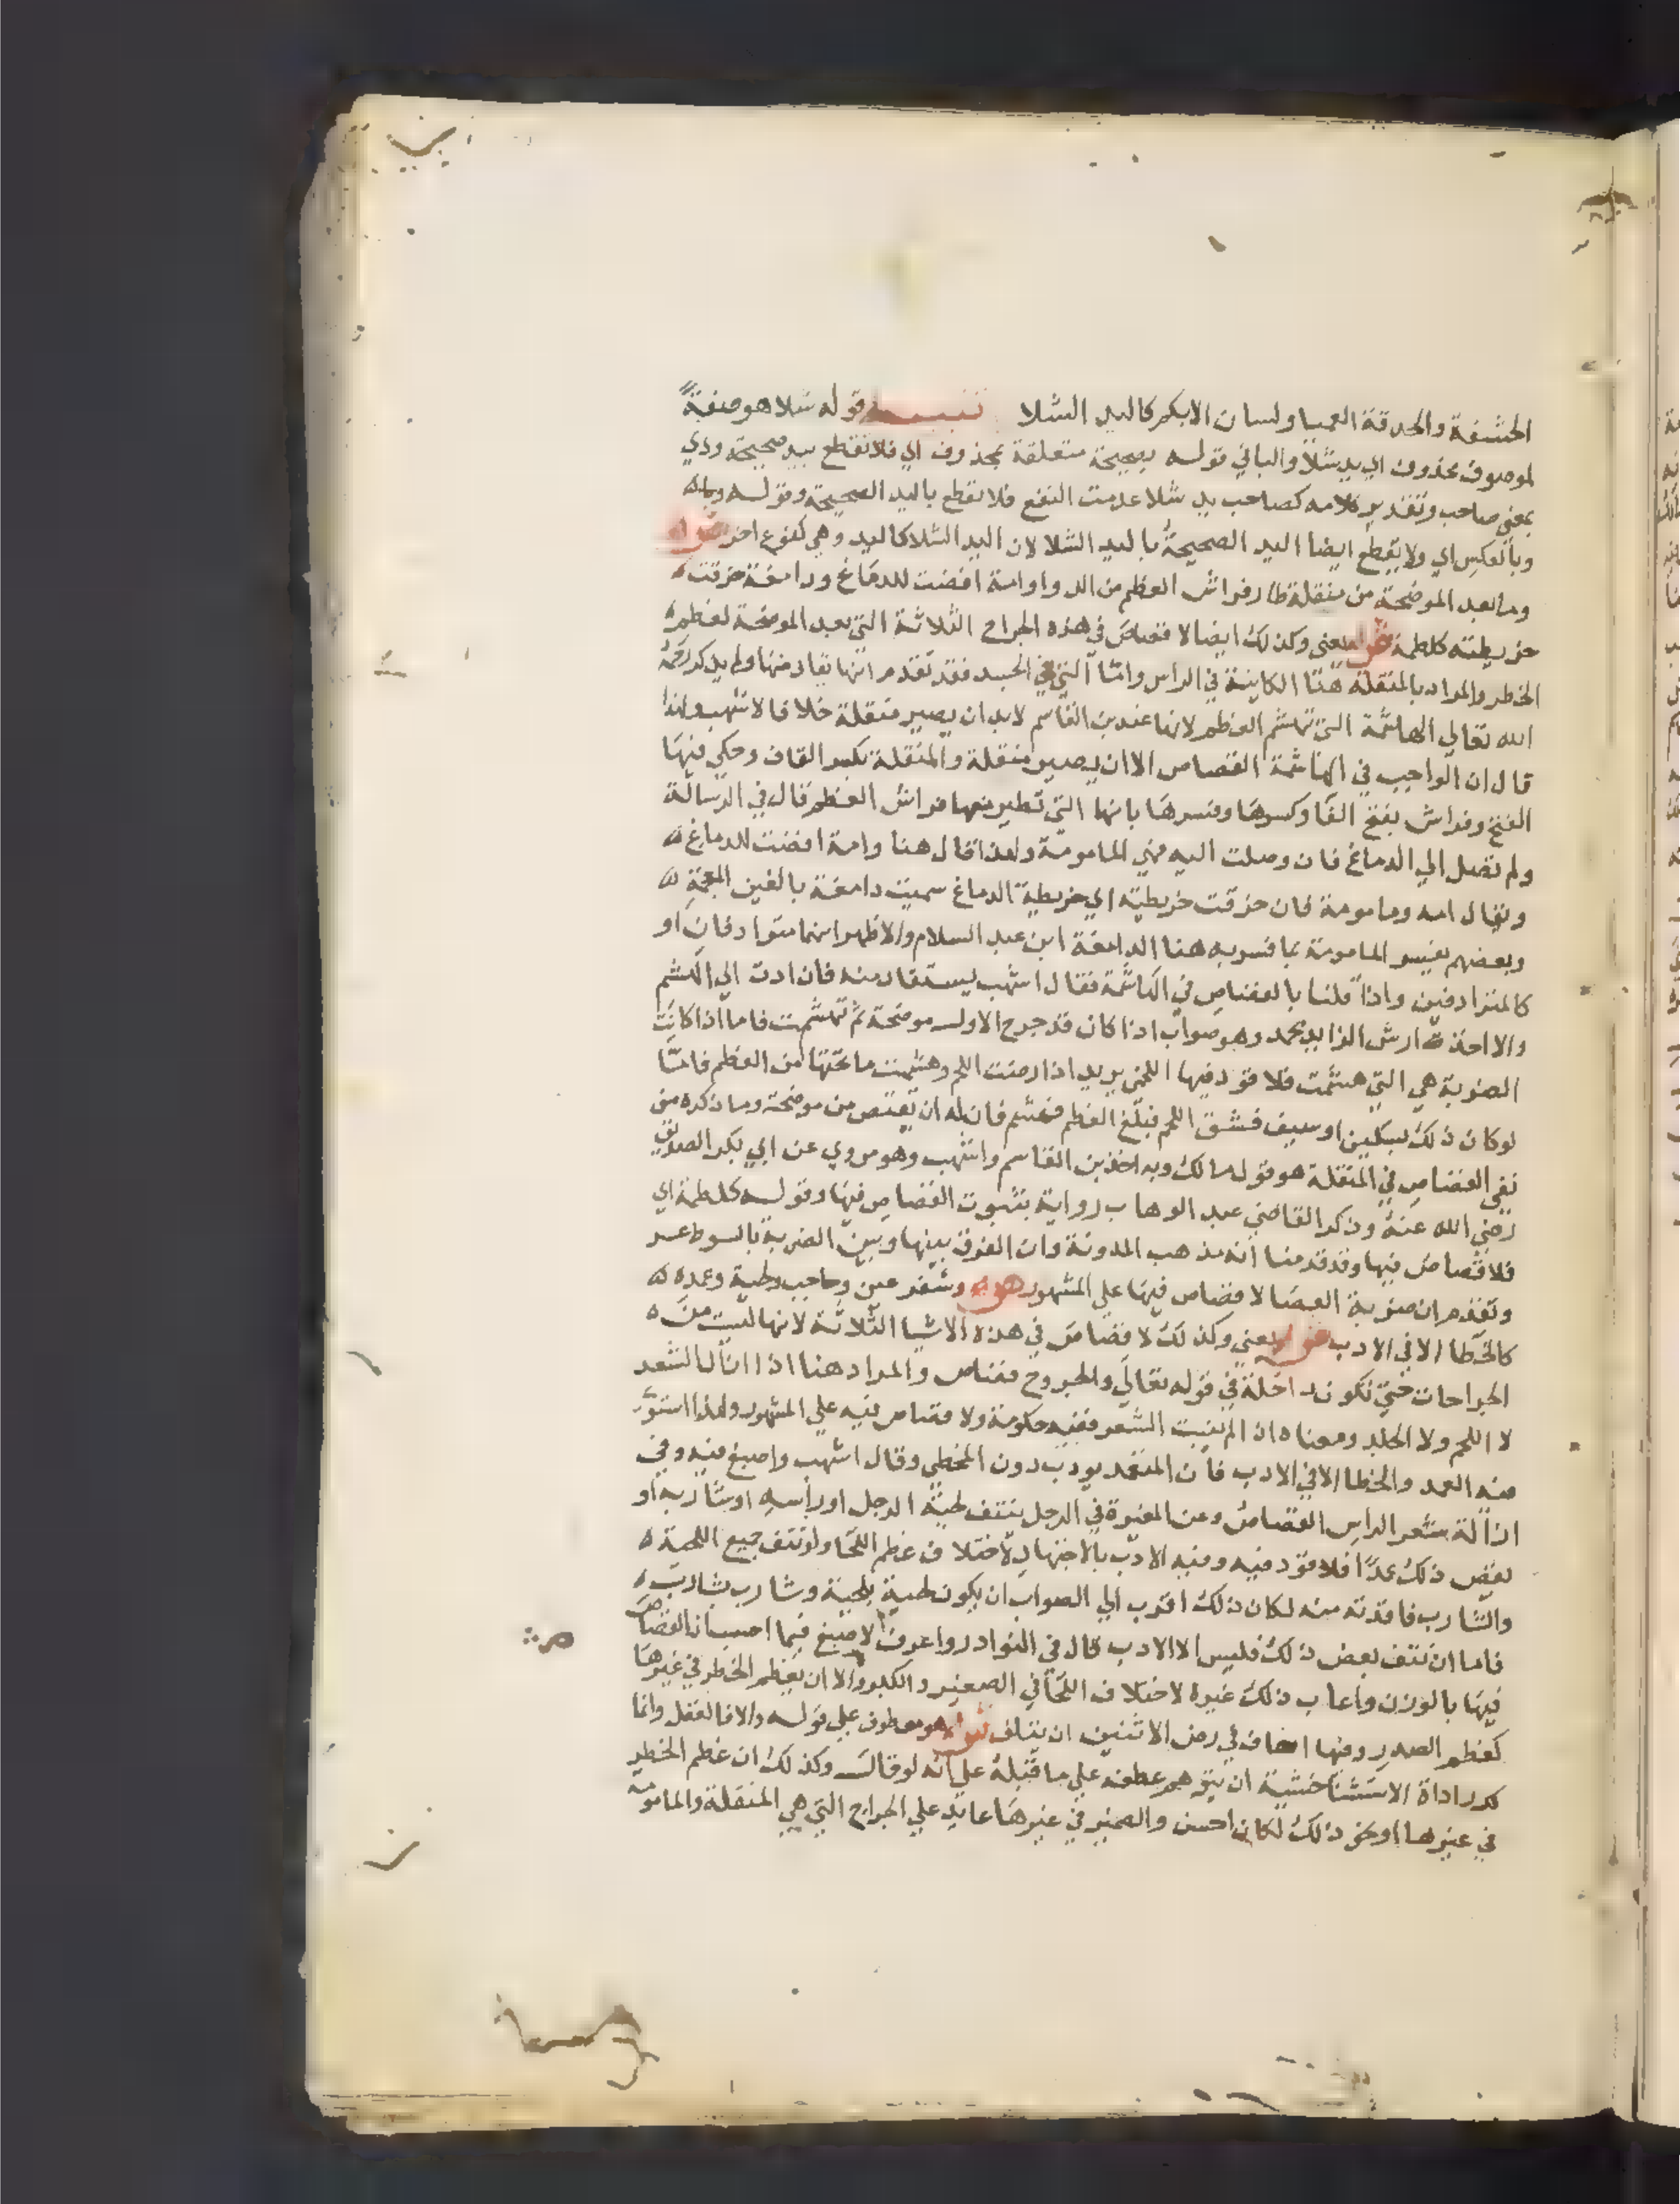 الحشفة والحدقة العميا ولسان الابكم كاليد الشلا تنبيه قوله شلا هو صفة
لموصوف محذوف اي يد شلا والبا في قوله بصحيحة متعلقة بمحذوف اي فلا تقطع بيد صحيحة وذي
بمعنى صاحب وتقدير كلامه كصاحب يد شلا عدمت النفع فلا تقطع باليد الصحيحة وقوله
وبالعكس اي ولا يقطع ايضا اليد الصحيحة باليد الشلا لان اليد الشلا كاليد وهي كنوع اخر قوله
وما بعد الموضحة من منقلة طار فراش العظم من الدوا وامة افضت للدماغ ودامغة خرقت
خريطته كلطمة يعني وكذلك ايضا لا قصاص في هذه الجراح الثلاثة التي بعد الموضحة لعظم
الخطر والمراد بالمنقلة هنا الكاينة في الراس واما التي في الجسد فقد تقدم انها يقاد منها ولم يذكر رحمه
الله تعالى الهاشمة التي تهشم العظم لانها عند بن القاسم لا بد ان يصير منقلة خلافا لاشهب ولذا
قال ان الواجب في الهاشمة القصاص الا ان يصير منقلة والمنقلة بكسر القاف وحكي فيها
الفتح وفراش بفتح الفا وكسرها وفسرها بانها التي تطير منها فراش العظم قال في الرسالة
ولم تصل الى الدماغ فان وصلت اليه فهي المامومة ولهذا قال هنا وامة افضت للدماغ
ويقال امة ومامومة فان خرقت خريطته اي خريطة الدماغ سميت دامغة بالغين المعجمة
وبعضهم يفسر المامومة بما فسر به هنا الدامغة ابن عبد السلام والاظهر انهما مترادفان او
كالمترادفين واذا قلنا بالقصاص في الهاشمة فقال اشهب يستقاد منه فان ادت الى الهشم
والا اخذ ارش الزايد محمد وهو صواب اذا كان قد جرح الاول موضحة ثم تهشمت فاما اذا كانت
الضربة هي التي هشمت فلا قود فيها اللخمي يريد اذا رضت اللحم وهشمت ما تحتها من العظم فاما
لو كان ذلك بسكين او سيف فشق اللحم فبلغ العظم فهشم فان له ان يقتص من موضحة وما ذكره من
نفي القصاص في المنقلة هو قول مالك وبه اخذ بن القاسم واشهب وهو مروي عن ابي بكر الصديق
رضي الله عنه وذكر القاضي عبد الوهاب رواية بثبوت القصاص فيها وقوله كلطمة اي
فلا قصاص فيها وقد قدمنا انه مذهب المدونة وان الفرق بينها وبين الضربة بالسوط عسر
وتقدم ان ضربة العصا لا قصاص فيها على المشهور وشفر عين وحاجب ولحية وعمده
كالخطا الا في الادب يعني وكذلك لا قصاص في هذه الاشيا الثلاثة لانها ليست من
الجراحات حتى تكون داخلة في قوله تعالى والجروح قصاص والمراد هنا اذا ازال الشعر
لا اللحم ولا الجلد ومعناه ان لم ينبت الشعر ففيه حكومة ولا قصاص فيه على المشهور ولهذا استوى
فيه العمد والخطا الا في الادب فان المتعمد يودب دون المخطي وقال اشهب واصبغ فيه وفي
ازالة شعر الراس القصاص وعن المغيرة في الرجل ينتف لحية الرجل او راسه او شاربه او
بعض ذلك عمدا فلا قود فيه وفيه الادب بالاجتهاد لاختلاف عظم اللحا ولو نتف جميع اللحية
والشارب فاقدته منه لكان ذلك اقرب الى الصواب ان يكون لحية بلحية وشارب بشارب
فاما ان نتف بعض ذلك فليس الا الادب قال في النوادر واعرف لاصبغ فيما احسب ان القصاص
فيها بالوزن واعاب ذلك غيره لاختلاف اللحا في الصغير والكبر والا ان يعظم الخطر في غيرها
كعظم الصدر وفيها اخاف في رض الانثيين ان يتلف قوله هو معطوف على قوله والا فالعقل وانما
كرر اداة الاستثنا خشية ان يتوهم عطفه على ما قبله على انه لو قال وكذلك ان عظم الخطر
في غيرها او نحو ذلك لكان احسن والضمير في غيرها عايد على الجراح التي هي المنقلة والمامومة